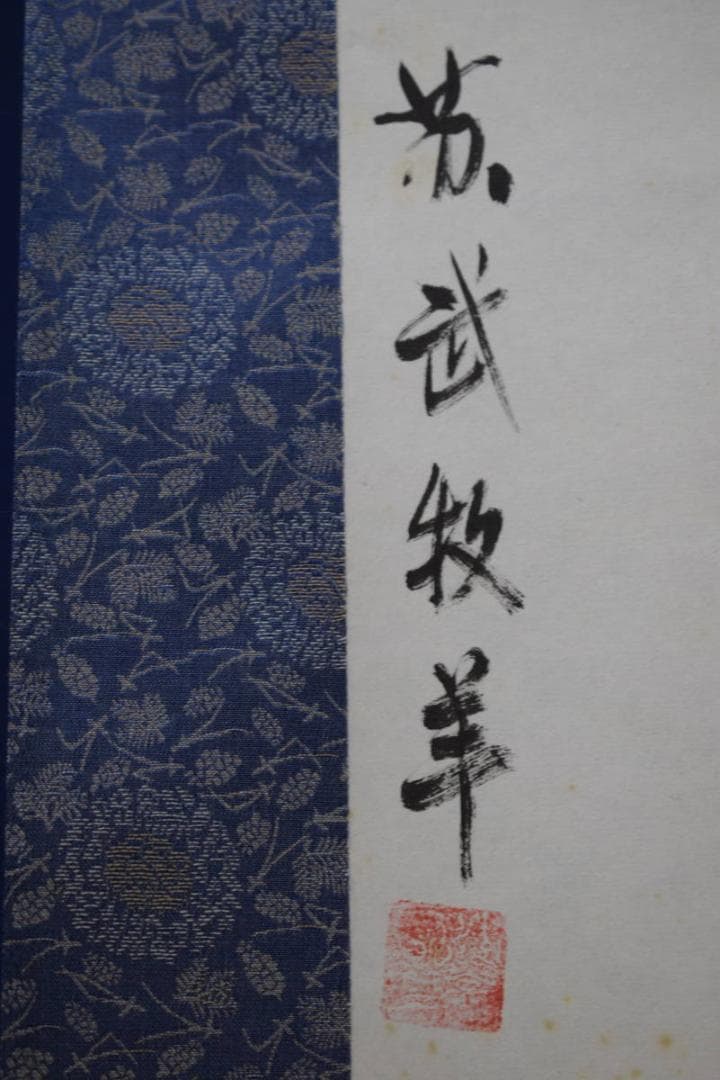 苏武牧羊